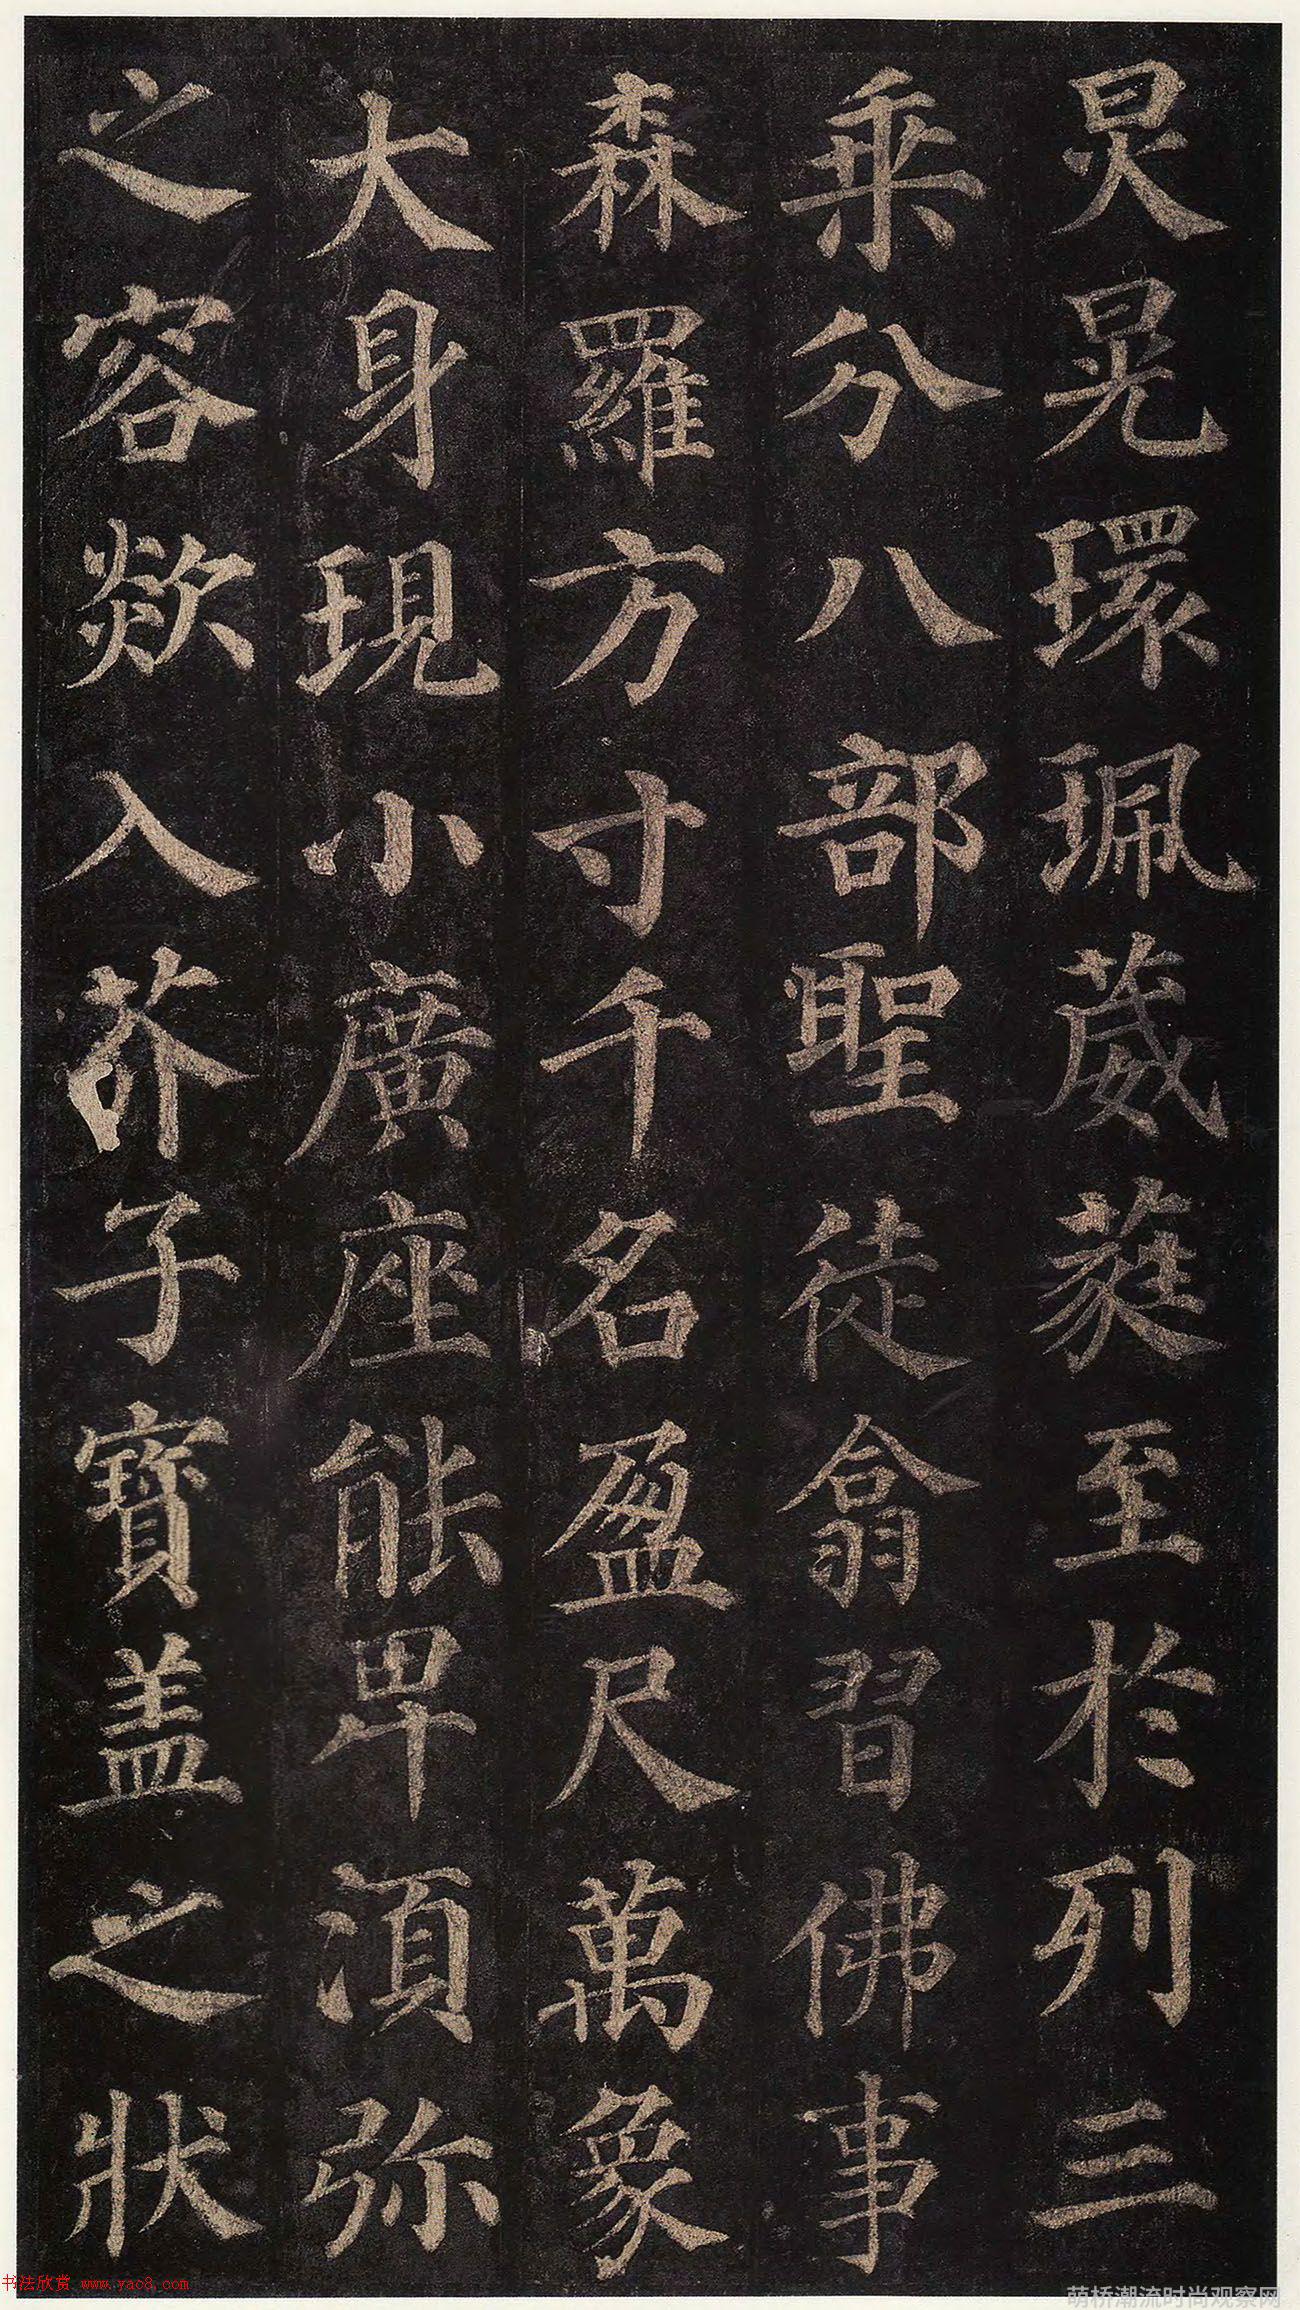 炅晃環珮葳蕤至於列三
乘分八部聖徒翕習佛事
森羅方寸千名盈尺萬象
大身現小廣座能卑須弥
之容欻入芥子寶盖之狀
书法欣赏 www.yac8.com
萌桥潮流时尚观察网